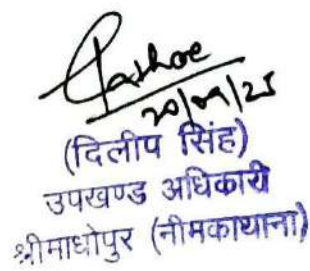 20/09/25
(दिलीप सिंह)
उपखण्ड अधिकारी
श्रीमाधोपुर (नीमकाथाना)